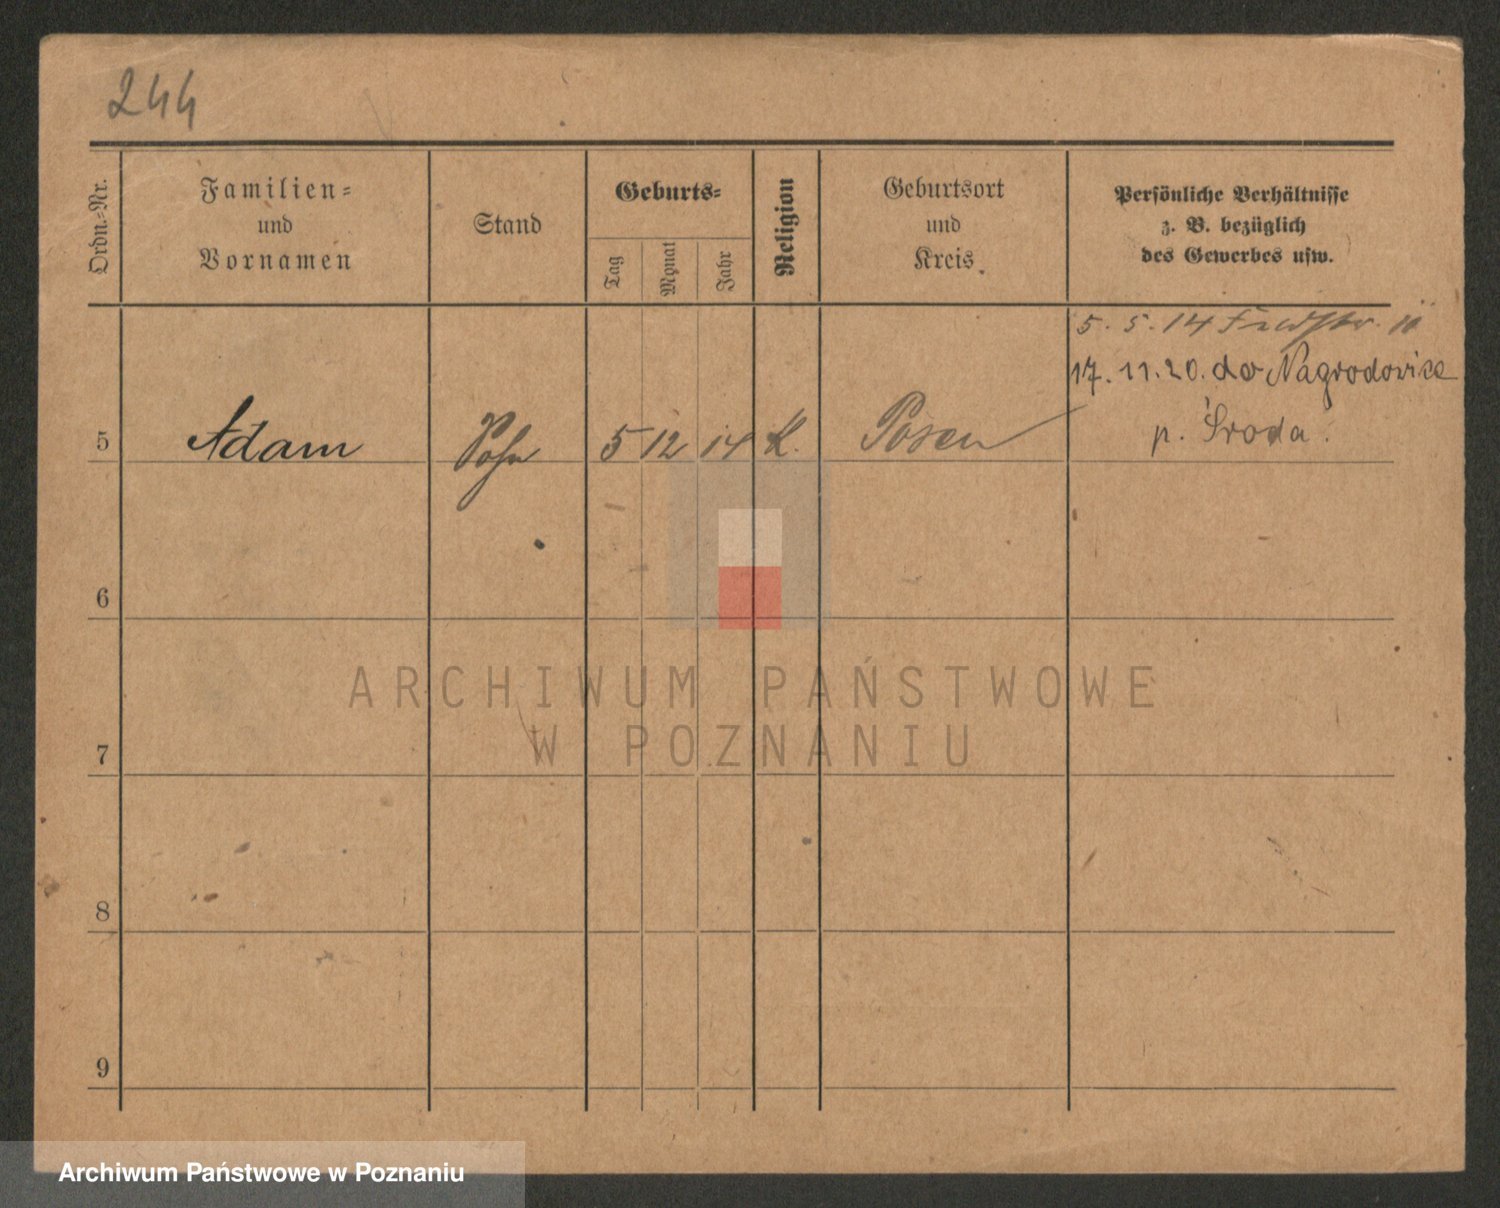 244
Ordn.-Nr.
Familien-
und
Vornamen
Stand
Geburts-
Tag
Monat
Jahr
Religion
Geburtsort
und
Kreis.
Persönliche Verhältnisse
z. B. bezüglich
des Gewerbes usw.
5. 5. 14
17. 11. 20. do Nagrodowice
p. Środa.
5 Adam Sohn 5 12 14 K. Posen
6
7
8
9
ARCHIWUM PAŃSTWOWE
W POZNANIU
Archiwum Państwowe w Poznaniu